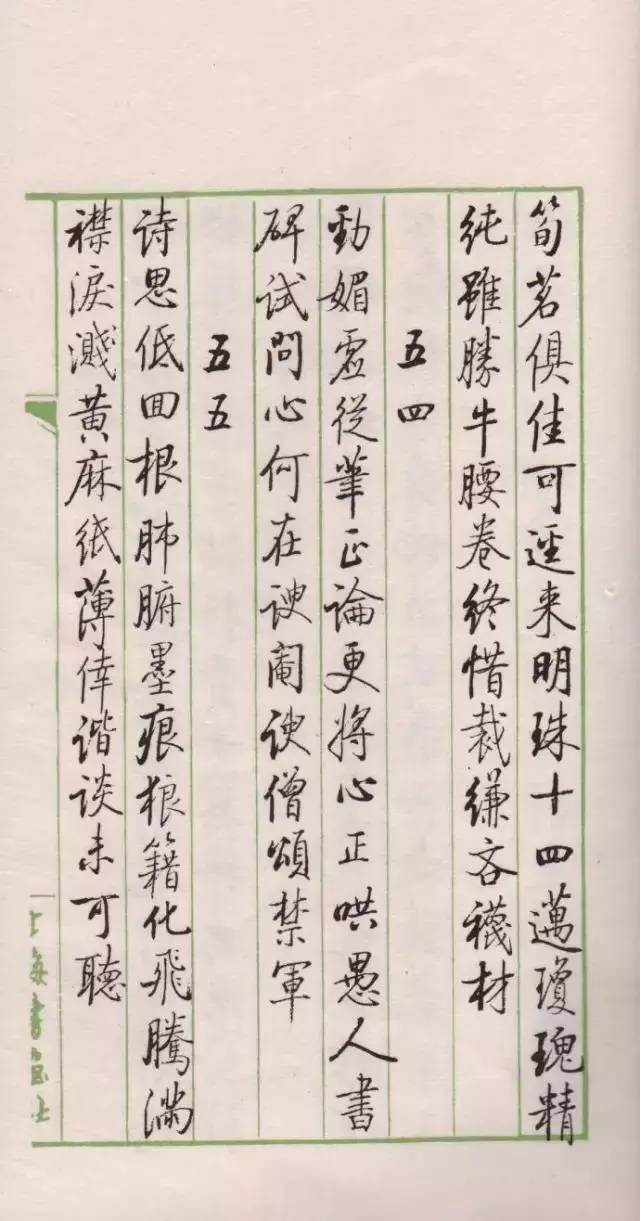 筍茗俱佳可逕来明珠十四邁瓊瑰精
纯雖勝牛腰卷终惜裁縑吝襪材
五四
勁媚虛從筆正論更將心正哄愚人書
碑试問心何在谀閹谀僧頌禁軍
五五
诗思低回根肺腑墨痕狼籍化飛騰滿
襟淚濺黃麻纸薄倖谐谈未可聽
上海書畫社